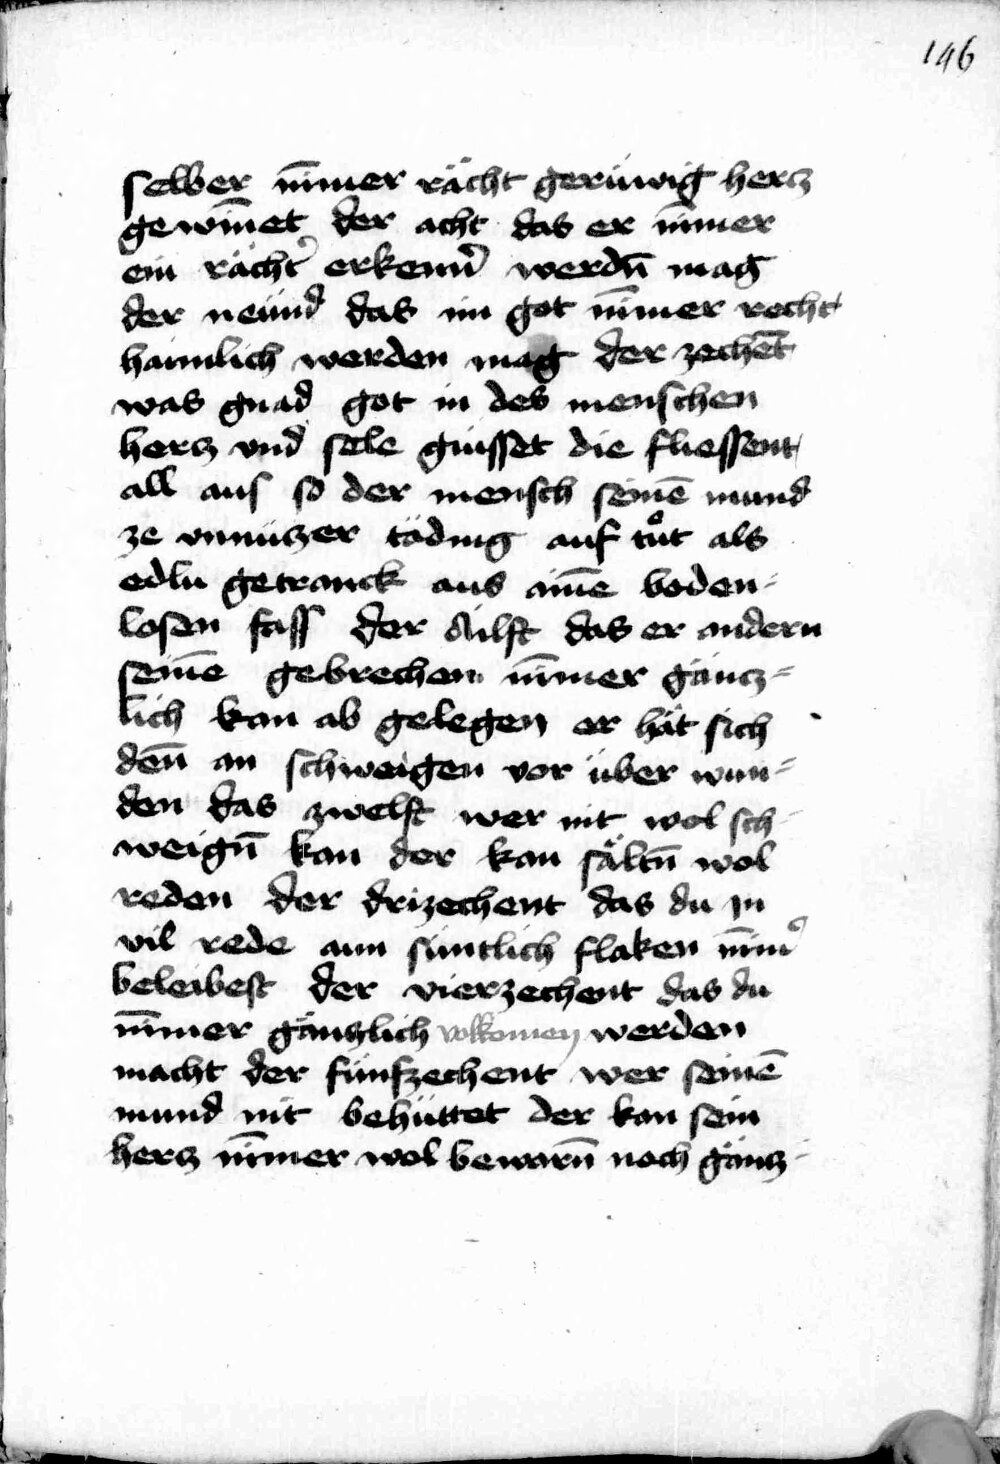 146
selber nīmer rächt gerüwig hertz
gewīnet der acht das er nīmer
ein rächt' erkenn' werdn̄ mag
der neünd das im got nīmer recht
haimlich werden mag der zechēt
was gnad got in des menschen
hertz vnd sele giüsset die fliessent
all aus so der mensch seinē mund
ze vnnützer täding auf tůt als
edlu getranck aus aīme boden-
losen fass der ailft das er andern
seīne gebrechen nīmer gäntz-
lich kan ab gelegen er hät sich
den̄ an schweigen vor über wun-
den das zwelft wer nit wol sch-
weign̄ kan der kan sältn̄ wol
reden der drizechent das du in
vil rede ann süntlich flaken nīm'
beleibest der vierzechent das du
nīmer gäntzlich volkomen werden
macht der fünfzechent wer seinē
mund nit behüttet der kan sein
hertz nīmer wol bewarn̄ noch gäntz-